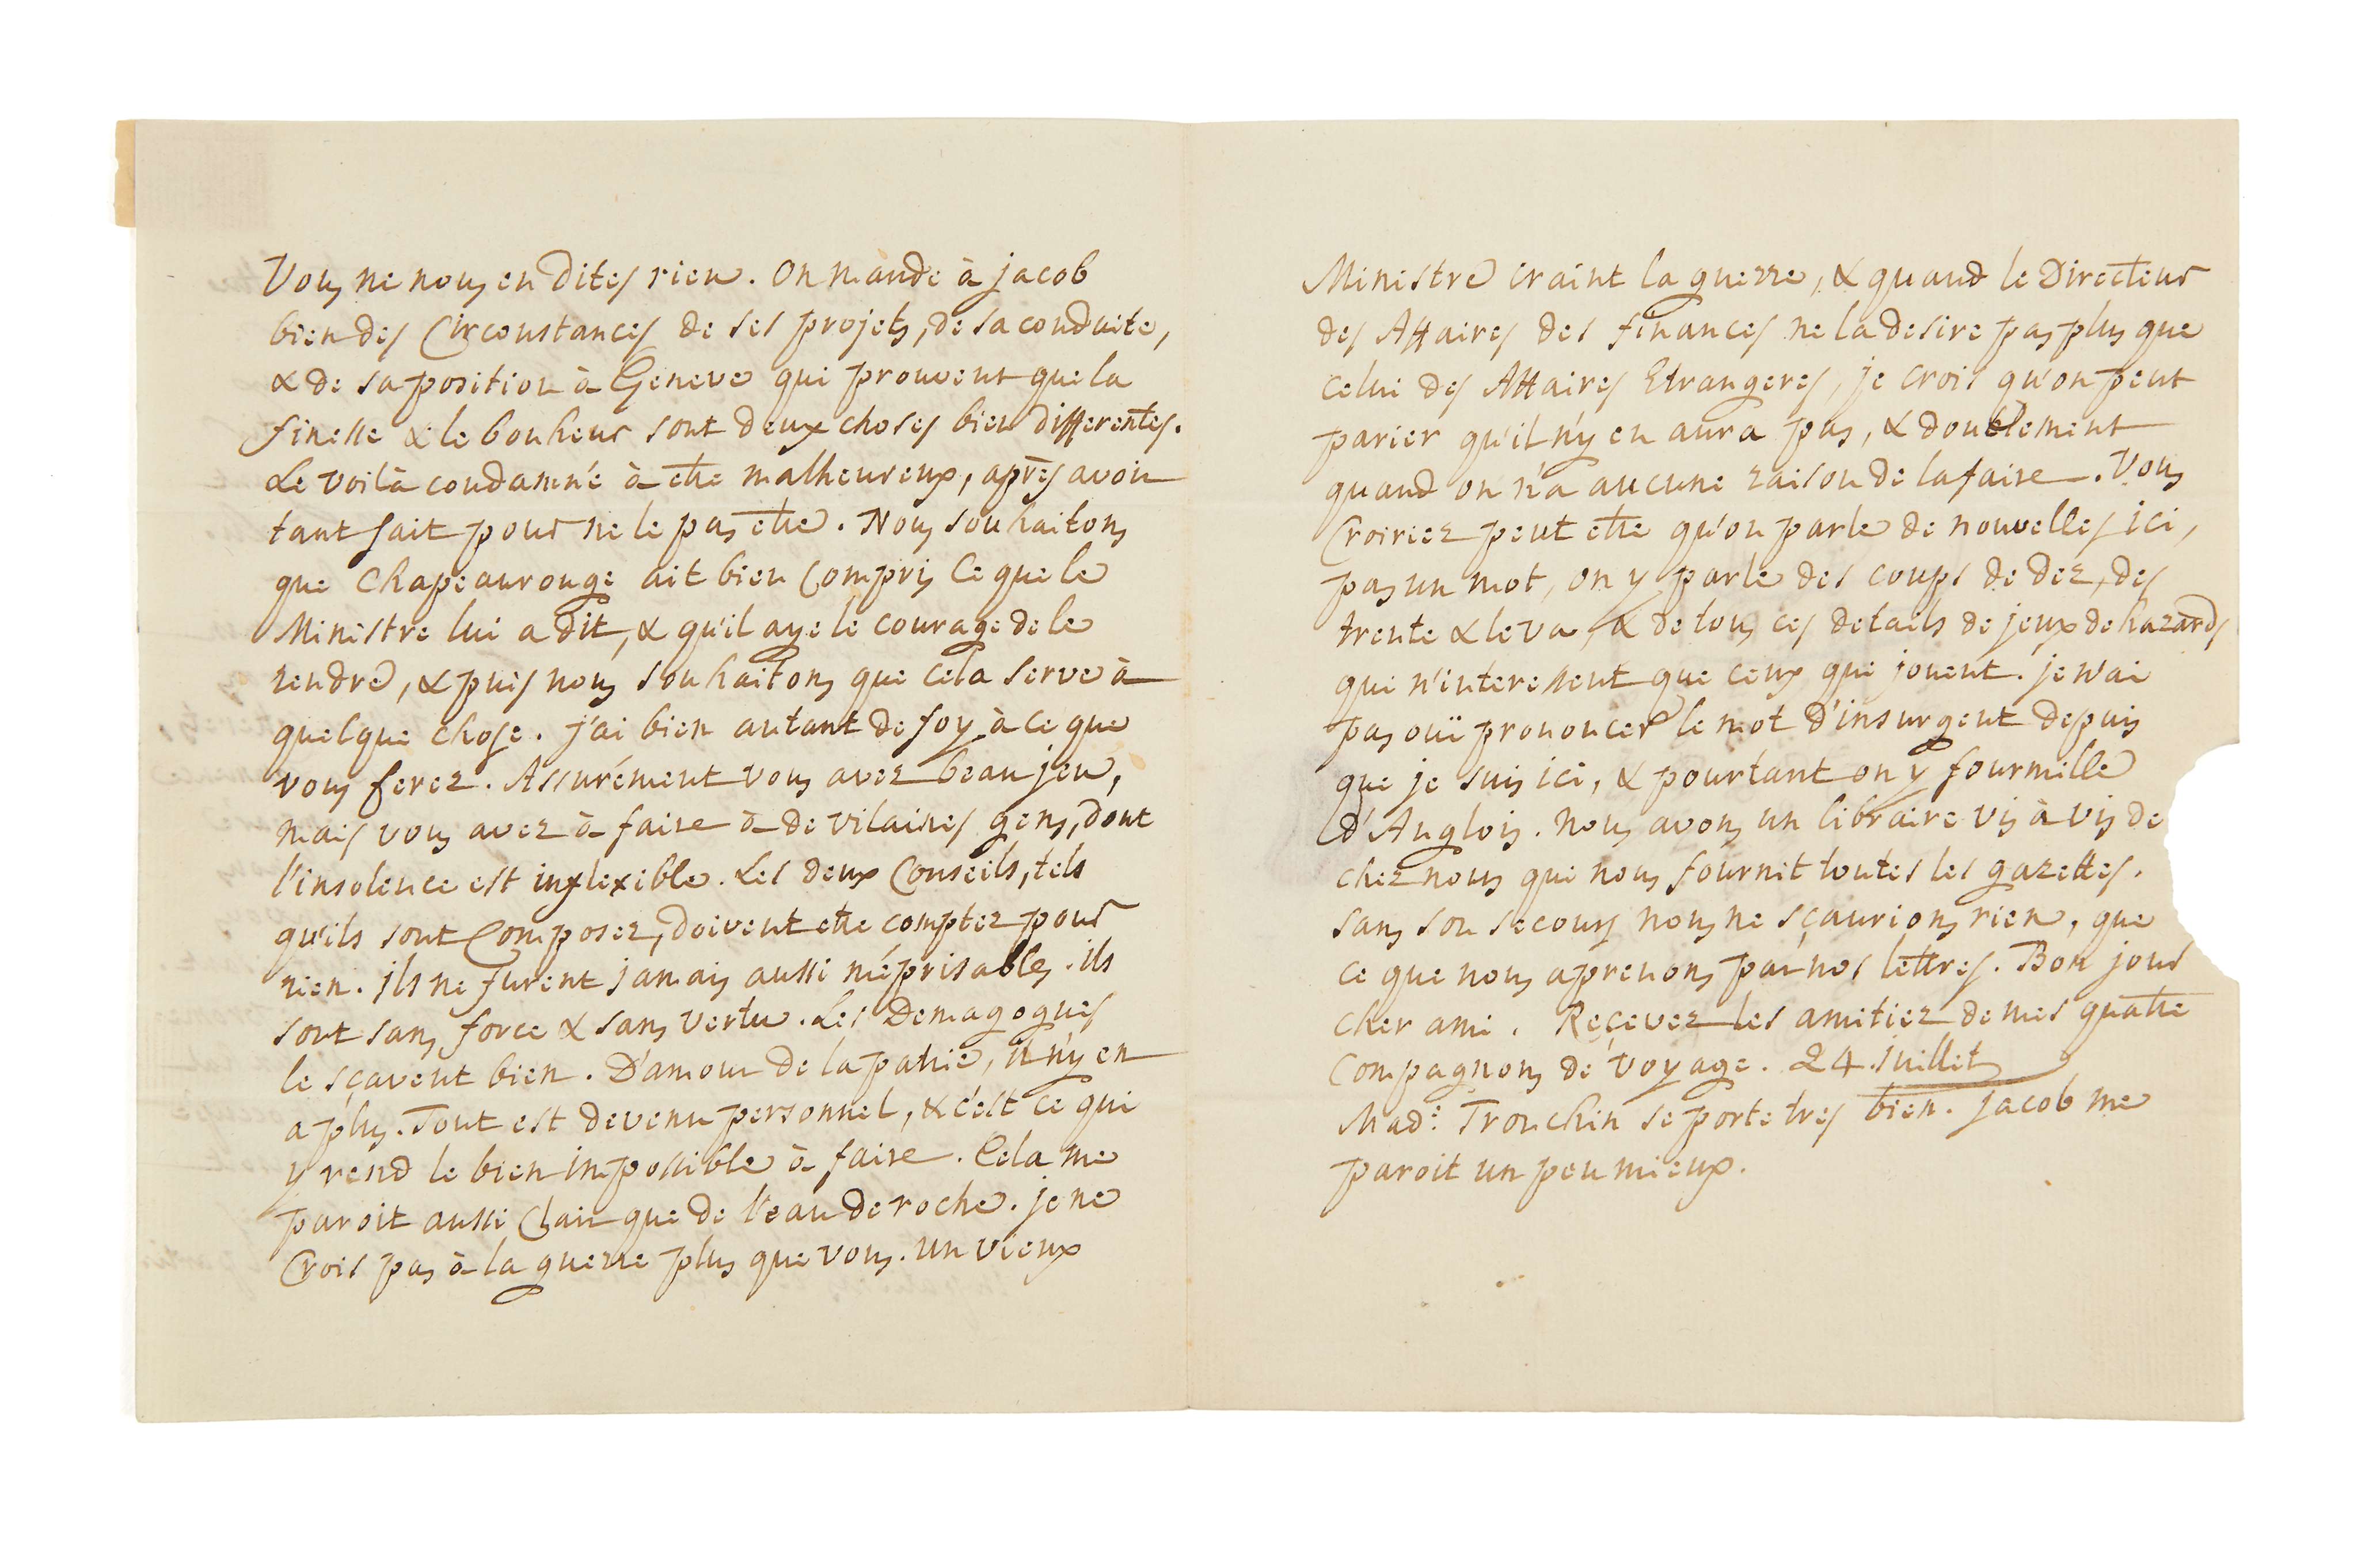 Vous ne nous en dites rien. On mande à jacob
bien des Circonstances de ses projets, de sa conduite,
& de sa position à Geneve qui prouvent que la
finesse & le bonheur sont deux choses bien differentes.
Le voilà condamné à etre malheureux, après avoir
tant fait pour ne le pas etre. Nous souhaitons
que Chapeaurouge ait bien Compris Ce que le
Ministre lui a dit, & qu'il aye le courage de le
rendre, & puis nous souhaitons que cela serve à
quelque chose. j'ai bien autant de foy à ce que
vous ferez. Assurément vous avez beau jeu,
mais vous avez à faire à de vilaines gens, dont
l'insolence est inflexible. Les deux Conseils, tels
qu'ils sont Composez, doivent etre comptez pour
rien. ils ne furent jamais aussi méprisables. ils
sont sans force & sans vertu. Les Demagogues
le sçavent bien. D'amour de la patrie, il n'y en
a plus. Tout est devenu personnel, & c'est ce qui
y rend le bien impossible à faire. Cela me
paroit aussi Clair que de l'eau de roche. je ne
Crois pas à la guerre plus que vous. un vieux
Ministre craint la guerre, & quand le Directeur
des Affaires des finances ne la desire pas plus que
celui des Affaires Etrangeres, je crois qu'on peut
parier qu'il n'y en aura pas, & doublement
quand on n'a aucune raison de la faire. Vous
Croiriez peut etre qu'on parle de nouvelles ici,
pas un mot, on y parle des coups de dez, des
trente & le va, & de tous ces details de jeux de hazards
qui n'interessent que ceux qui jouent. je n'ai
pas ouï prononcer le mot d'insurgent depuis
que je suis ici, & pourtant on y fourmille
d'Anglois. nous avons un libraire vis à vis de
chez nous qui nous fournit toutes les gazettes.
sans son secours nous ne sçaurions rien, que
ce que nous aprenons par nos lettres. Bon jour
cher ami. Reçevez les amitiez de mes quatre
Compagnons de voyage. 24. juillet
Mad.e Tronchin se porte tres bien. jacob me
paroit un peu mieux.